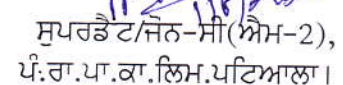 ਸੁਪਰਡੈਟ/ਜੋਨ-ਸੀ(ਐਮ-2),
ਪੰ.ਰਾ.ਪਾ.ਕਾ.ਲਿਮ.ਪਟਿਆਲਾ।